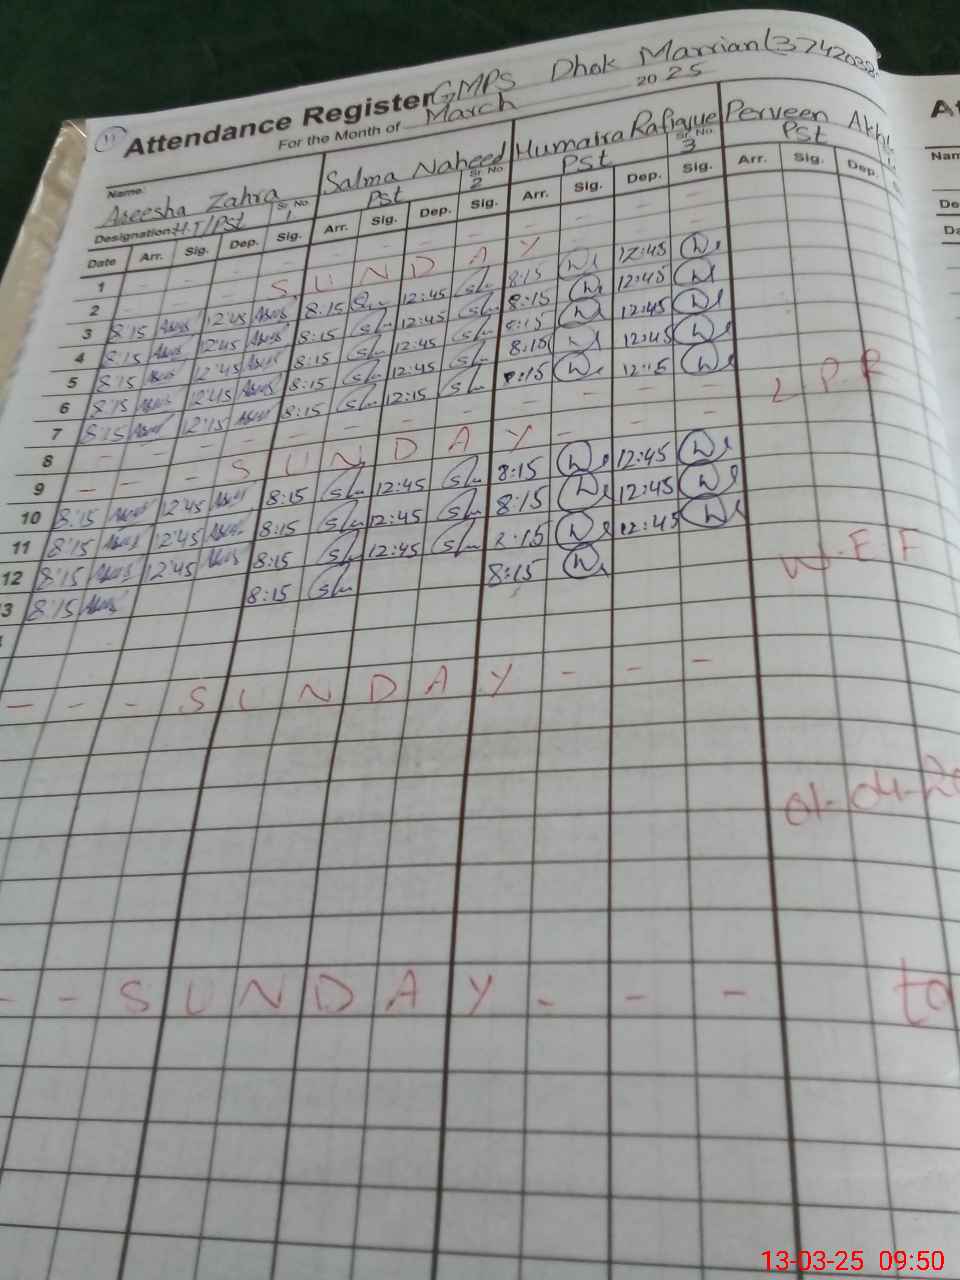 11 Attendance Register GMPS Dhok Marrian (3742038
For the Month of March 2025
Name Aneesha Zahra Sr. No. 1 Salma Naheed Sr. No. 2 Humaira Rafique Sr. No. 3 Perveen Akh
Designation: H.T/PST PST PST PST
Date Arr. Sig. Dep. Sig. Arr. Sig. Dep. Sig. Arr. Sig. Dep. Sig. Arr. Sig. Dep.
1 - - - - - - - - - - -
2 - - - S U N D A Y - - -
3 8:15 12:45 8:15 12:45 8:15 12:45
4 8:15 12:45 8:15 12:45 8:15 12:45
5 8:15 12:45 8:15 12:45 8:15 12:45
6 8:15 12:45 8:15 12:45 8:15 12:45
7 8:15 12:15 8:15 12:15 8:15 12:15
8 - - - - - - - - - - - L P R
9 - - - S U N D A Y - - -
10 8:15 12:45 8:15 12:45 8:15 12:45
11 8:15 12:45 8:15 12:45 8:15 12:45
12 8:15 12:45 8:15 12:45 8:15 12:45
3 8:15 8:15 8:15 W.E F
- - - S U N D A Y - - -
01-04-20
- - S U N D A Y - - - to
At
Nam
De
Da
13-03-25 09:50